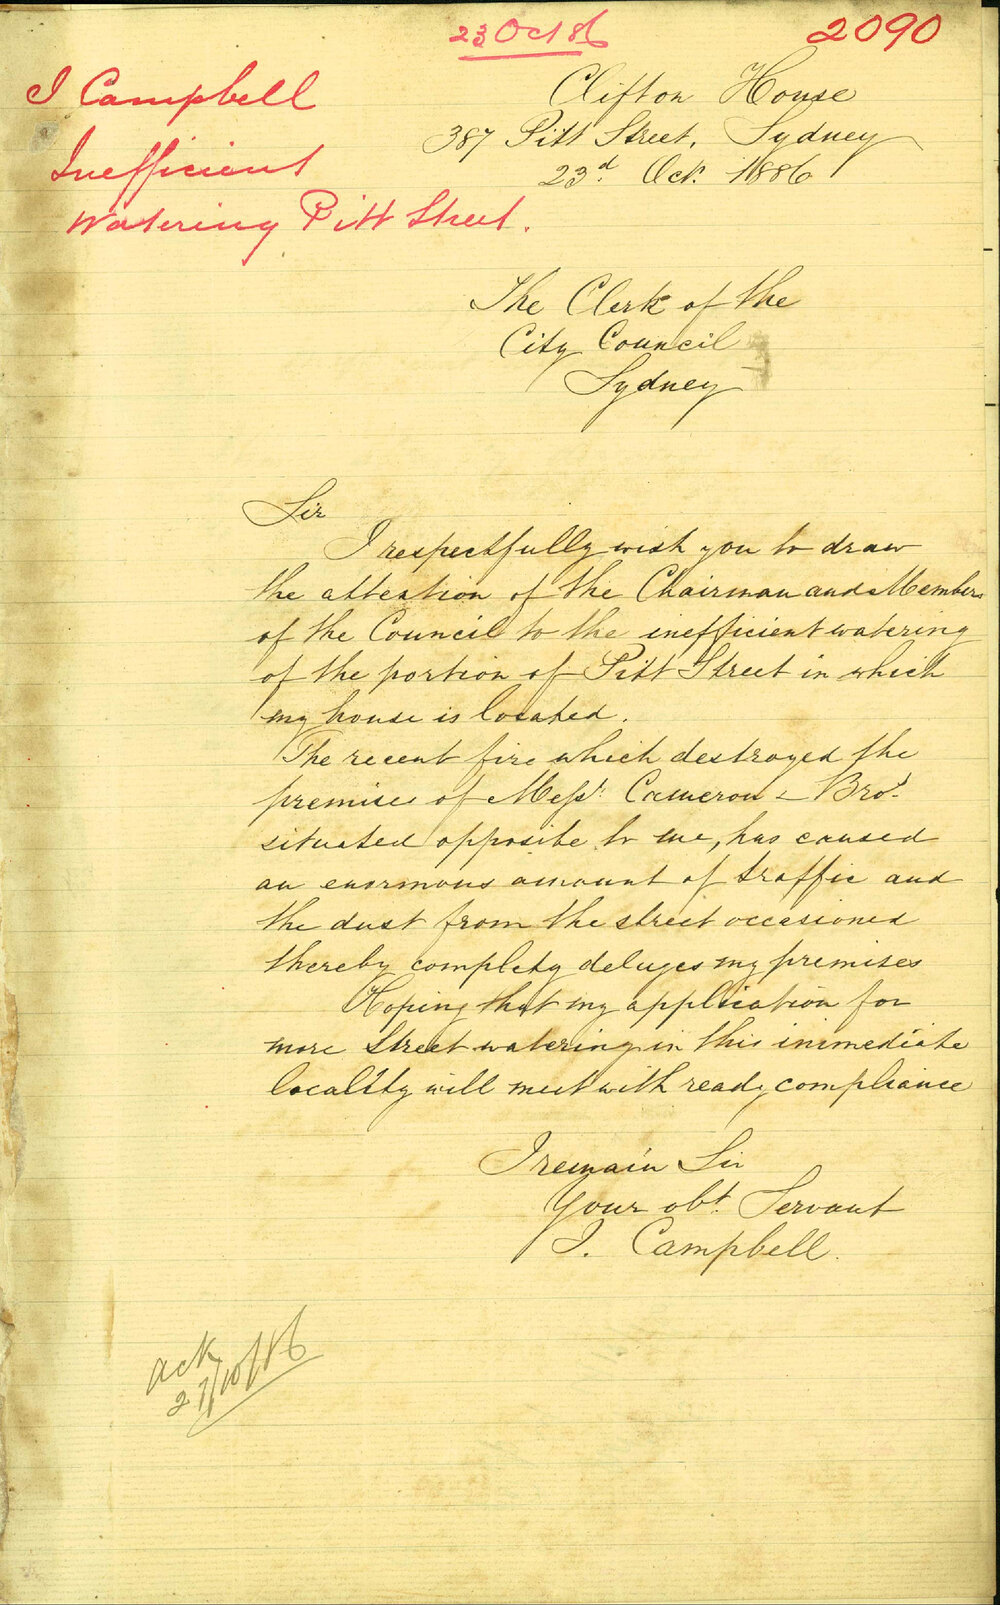 23 Oct 86
2090
I Campbell
Inefficient
Watering Pitt Street.
Clifton House
387 Pitt Street, Sydney
23d. Oct. 1886
The Clerk of the
City Council
Sydney
Sir
I respectfully wish you to draw
the attention of the Chairman and Members
of the Council to the inefficient watering
of the portion of Pitt Street in which
my house is located.
The recent fire which destroyed the
premises of Messrs. Cameron & Bros.
situated opposite to me, has caused
an enormous amount of traffic and
the dust from the street occasioned
thereby complety deluges my premises
Hoping that my application for
more Street watering in this immediate
locality will meet with ready compliance
I remain Sir
Your obt. Servant
I. Campbell.
Ack
27/10/86